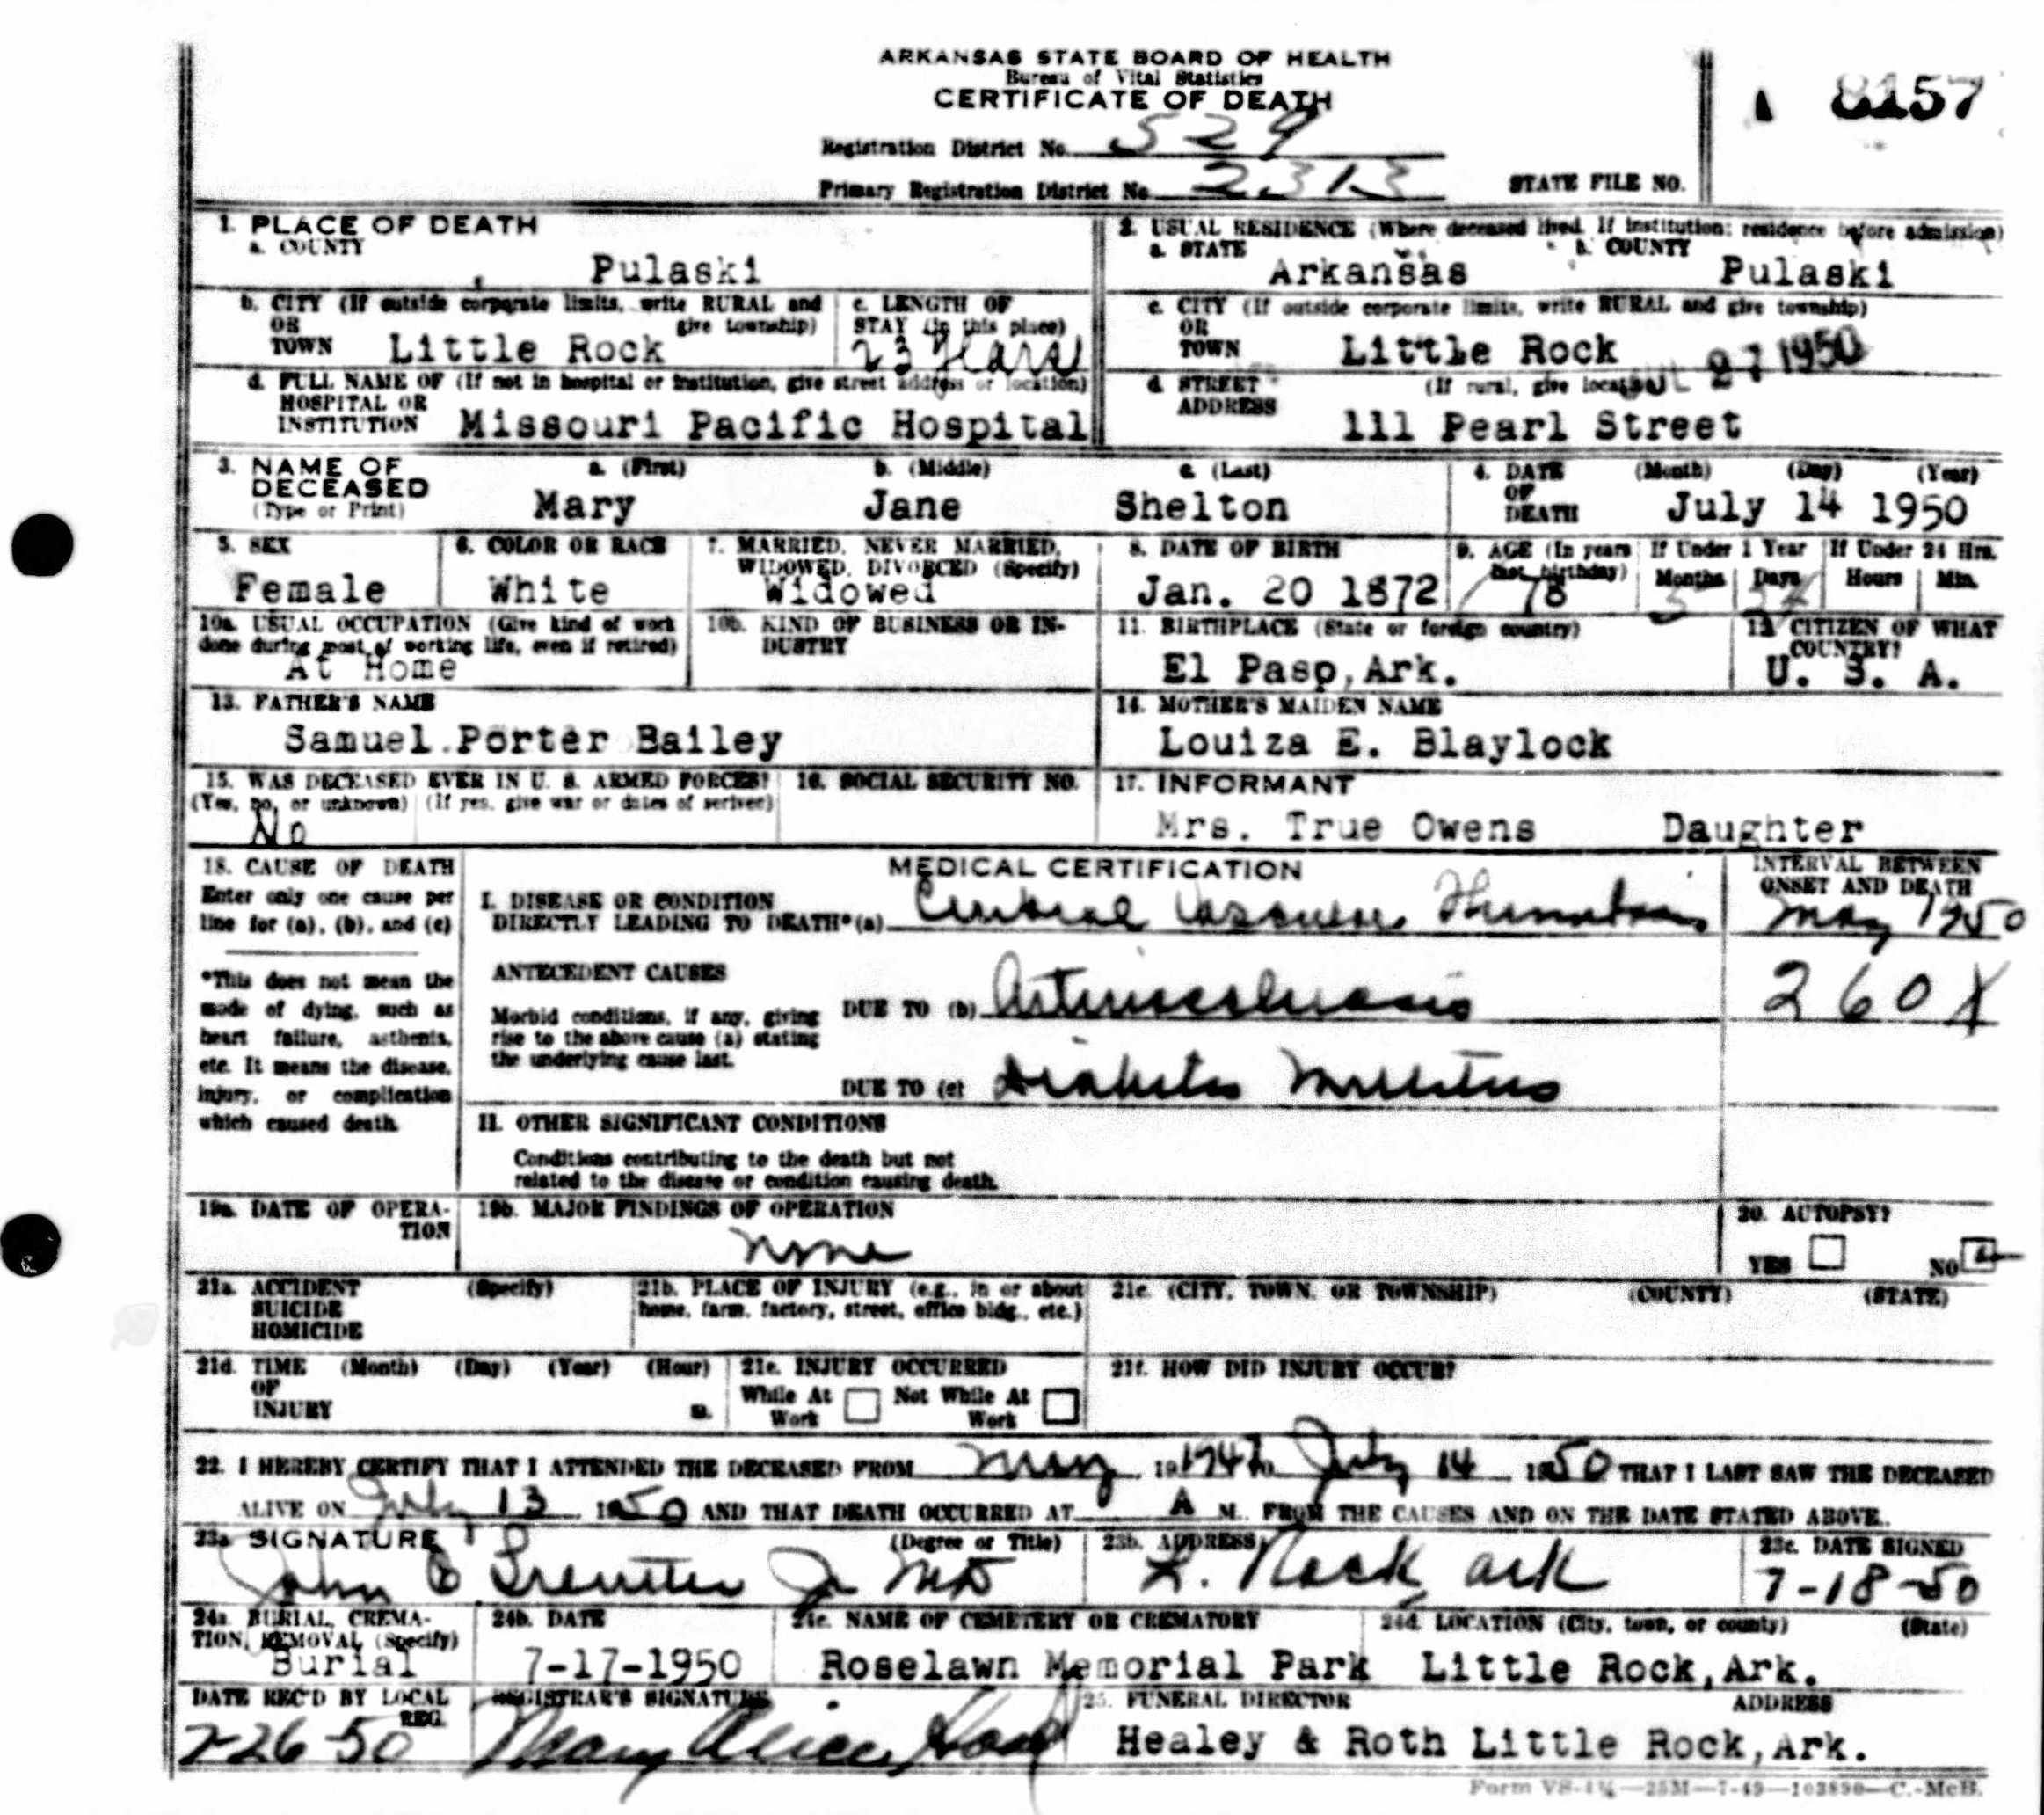 ARKANSAS STATE BOARD OF HEALTH
Bureau of Vital Statistics
CERTIFICATE OF DEATH
8157
Registration District No. 529
Primary Registration District No. 2313
STATE FILE NO.
1. PLACE OF DEATH
a. COUNTY
Pulaski
2. USUAL RESIDENCE (Where deceased lived. If institution: residence before admission)
a. STATE b. COUNTY
Arkansas Pulaski
b. CITY (If outside corporate limits, write RURAL and give township)
OR
TOWN Little Rock
c. LENGTH OF
STAY (in this place)
23 Years
c. CITY (If outside corporate limits, write RURAL and give township)
OR
TOWN Little Rock
JUL 27 1950
d. FULL NAME OF (If not in hospital or institution, give street address or location)
HOSPITAL OR
INSTITUTION Missouri Pacific Hospital
d. STREET (If rural, give location)
ADDRESS 111 Pearl Street
3. NAME OF DECEASED
(Type or Print)
a. (First) b. (Middle) c. (Last)
Mary Jane Shelton
4. DATE OF DEATH (Month) (Day) (Year)
July 14 1950
5. SEX
Female
6. COLOR OR RACE
White
7. MARRIED, NEVER MARRIED,
WIDOWED, DIVORCED (Specify)
Widowed
8. DATE OF BIRTH
Jan. 20 1872
9. AGE (In years last birthday)
78
If Under 1 Year
Months Days
5
If Under 24 Hrs.
Hours Min.
10a. USUAL OCCUPATION (Give kind of work
done during most of working life, even if retired)
At Home
10b. KIND OF BUSINESS OR IN-
DUSTRY
11. BIRTHPLACE (State or foreign country)
El Pasp, Ark.
12. CITIZEN OF WHAT
COUNTRY?
U. S. A.
13. FATHER'S NAME
Samuel Porter Bailey
14. MOTHER'S MAIDEN NAME
Louiza E. Blaylock
15. WAS DECEASED EVER IN U. S. ARMED FORCES?
(Yes, no, or unknown) (If yes, give war or dates of service)
No
16. SOCIAL SECURITY NO.
17. INFORMANT
Mrs. True Owens Daughter
18. CAUSE OF DEATH
Enter only one cause per
line for (a), (b), and (c)
*This does not mean the
mode of dying, such as
heart failure, asthenia,
etc. It means the disease,
injury, or complication
which caused death.
MEDICAL CERTIFICATION
I. DISEASE OR CONDITION
DIRECTLY LEADING TO DEATH*(a) Cerebral Vascular Thrombosis
INTERVAL BETWEEN
ONSET AND DEATH
May 1950
ANTECEDENT CAUSES
Morbid conditions, if any, giving
rise to the above cause (a) stating
the underlying cause last.
DUE TO (b) Arteriosclerosis
260X
DUE TO (c) Diabetes Mellitus
II. OTHER SIGNIFICANT CONDITIONS
Conditions contributing to the death but not
related to the disease or condition causing death.
19a. DATE OF OPERA-
TION
19b. MAJOR FINDINGS OF OPERATION
None
20. AUTOPSY?
YES NO
21a. ACCIDENT (Specify)
SUICIDE
HOMICIDE
21b. PLACE OF INJURY (e.g., in or about
home, farm, factory, street, office bldg., etc.)
21c. (CITY, TOWN, OR TOWNSHIP) (COUNTY) (STATE)
21d. TIME (Month) (Day) (Year) (Hour)
OF
INJURY m.
21e. INJURY OCCURRED
While At Work Not While At Work
21f. HOW DID INJURY OCCUR?
22. I HEREBY CERTIFY THAT I ATTENDED THE DECEASED FROM May, 1947 TO July 14, 1950 THAT I LAST SAW THE DECEASED
ALIVE ON July 13, 1950 AND THAT DEATH OCCURRED AT A M., FROM THE CAUSES AND ON THE DATE STATED ABOVE.
23a. SIGNATURE (Degree or Title)
John Jr MD
23b. ADDRESS
L. Rock, Ark
23c. DATE SIGNED
7-18-50
24a. BURIAL, CREMA-
TION, REMOVAL (Specify)
Burial
24b. DATE
7-17-1950
24c. NAME OF CEMETERY OR CREMATORY
Roselawn Memorial Park
24d. LOCATION (City, town, or county) (State)
Little Rock, Ark.
DATE REC'D BY LOCAL
REG.
7-26-50
REGISTRAR'S SIGNATURE
Mary Alice
25. FUNERAL DIRECTOR ADDRESS
Healey & Roth Little Rock, Ark.
Form VS-4¼—25M—7-49—103890—C.-McB.